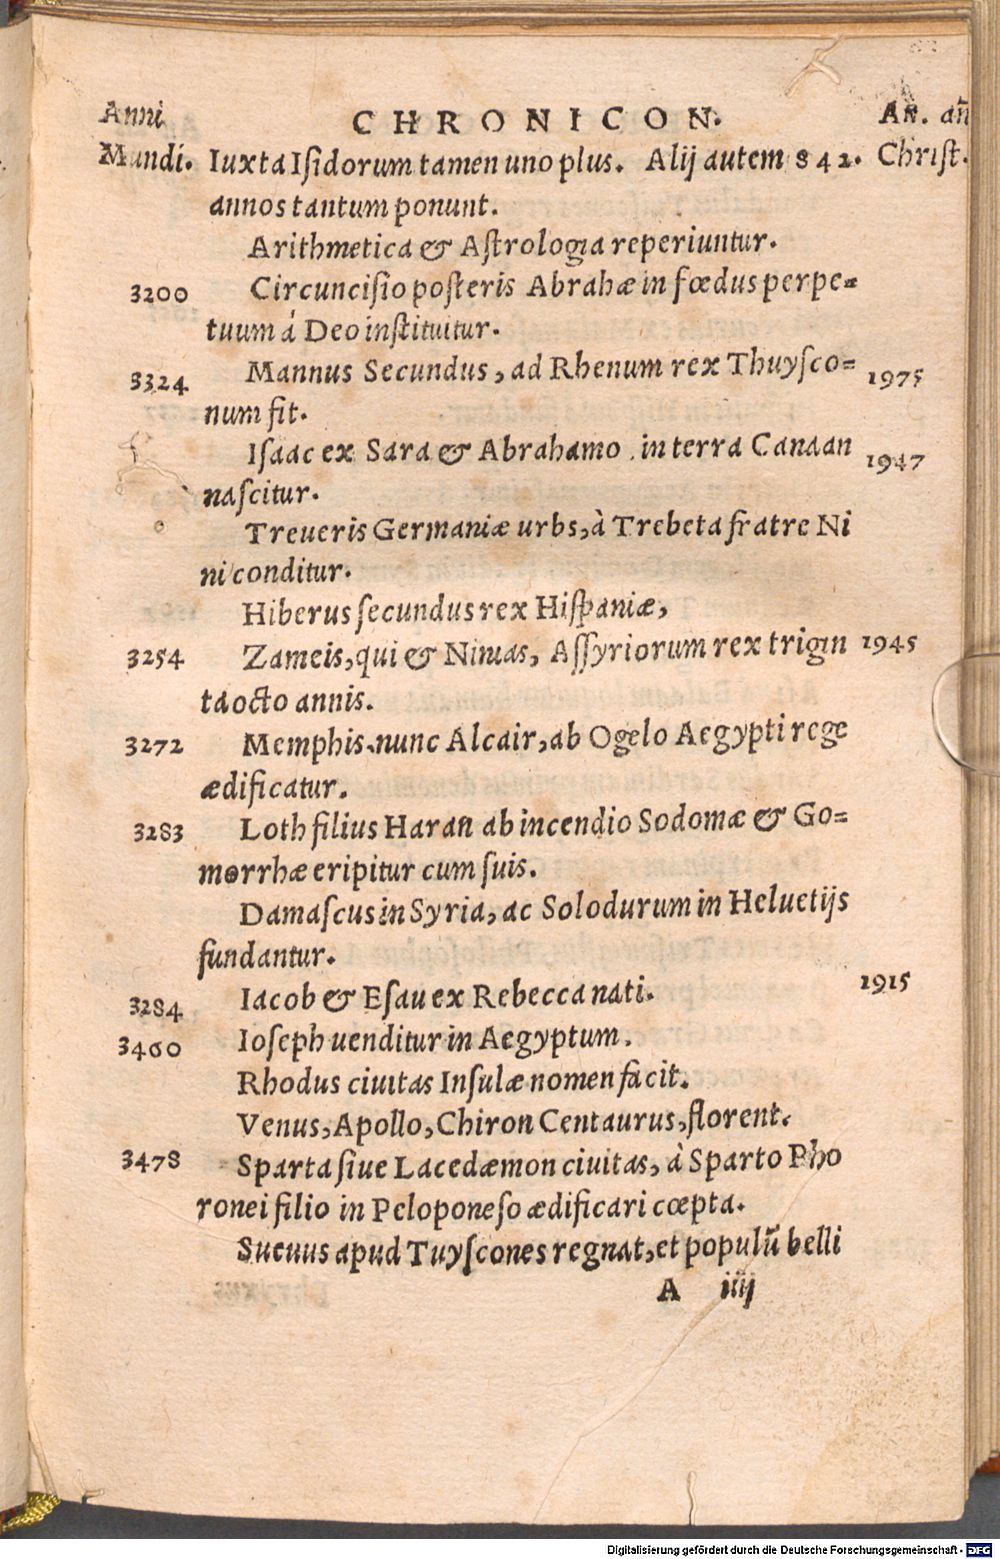 Anni CHRONICON. An. añ
Mundi. Iuxta Isidorum tamen uno plus. Alij autem 842. Christ.
annos tantum ponunt.
Arithmetica & Astrologia reperiuntur.
3200 Circuncisio posteris Abrahæ in fœdus perpe=
tuum á Deo instituitur.
3324 Mannus Secundus, ad Rhenum rex Thuysco= 1975
num fit.
Isaac ex Sara & Abrahamo in terra Canaan 1947
nascitur.
Treueris Germaniæ urbs, à Trebeta fratre Ni
ni conditur.
Hiberus secundus rex Hispaniæ,
3254 Zameis, qui & Ninias, Assyriorum rex trigin 1945
ta octo annis.
3272 Memphis, nunc Alcair, ab Ogelo Aegypti rege
ædificatur.
3283 Loth filius Haran ab incendio Sodomæ & Go=
morrhæ eripitur cum suis.
Damascus in Syria, ac Solodurum in Heluetijs
fundantur.
3284 Iacob & Esau ex Rebecca nati. 1915
3460 Ioseph uenditur in Aegyptum.
Rhodus ciuitas Insulæ nomen facit.
Venus, Apollo, Chiron Centaurus, florent.
3478 Sparta siue Lacedæmon ciuitas, à Sparto Pho
ronei filio in Peloponeso ædificari cœpta.
Sueuus apud Tuyscones regnat, et populũ belli
A iiij
Digitalisierung gefördert durch die Deutsche Forschungsgemeinschaft - DFG